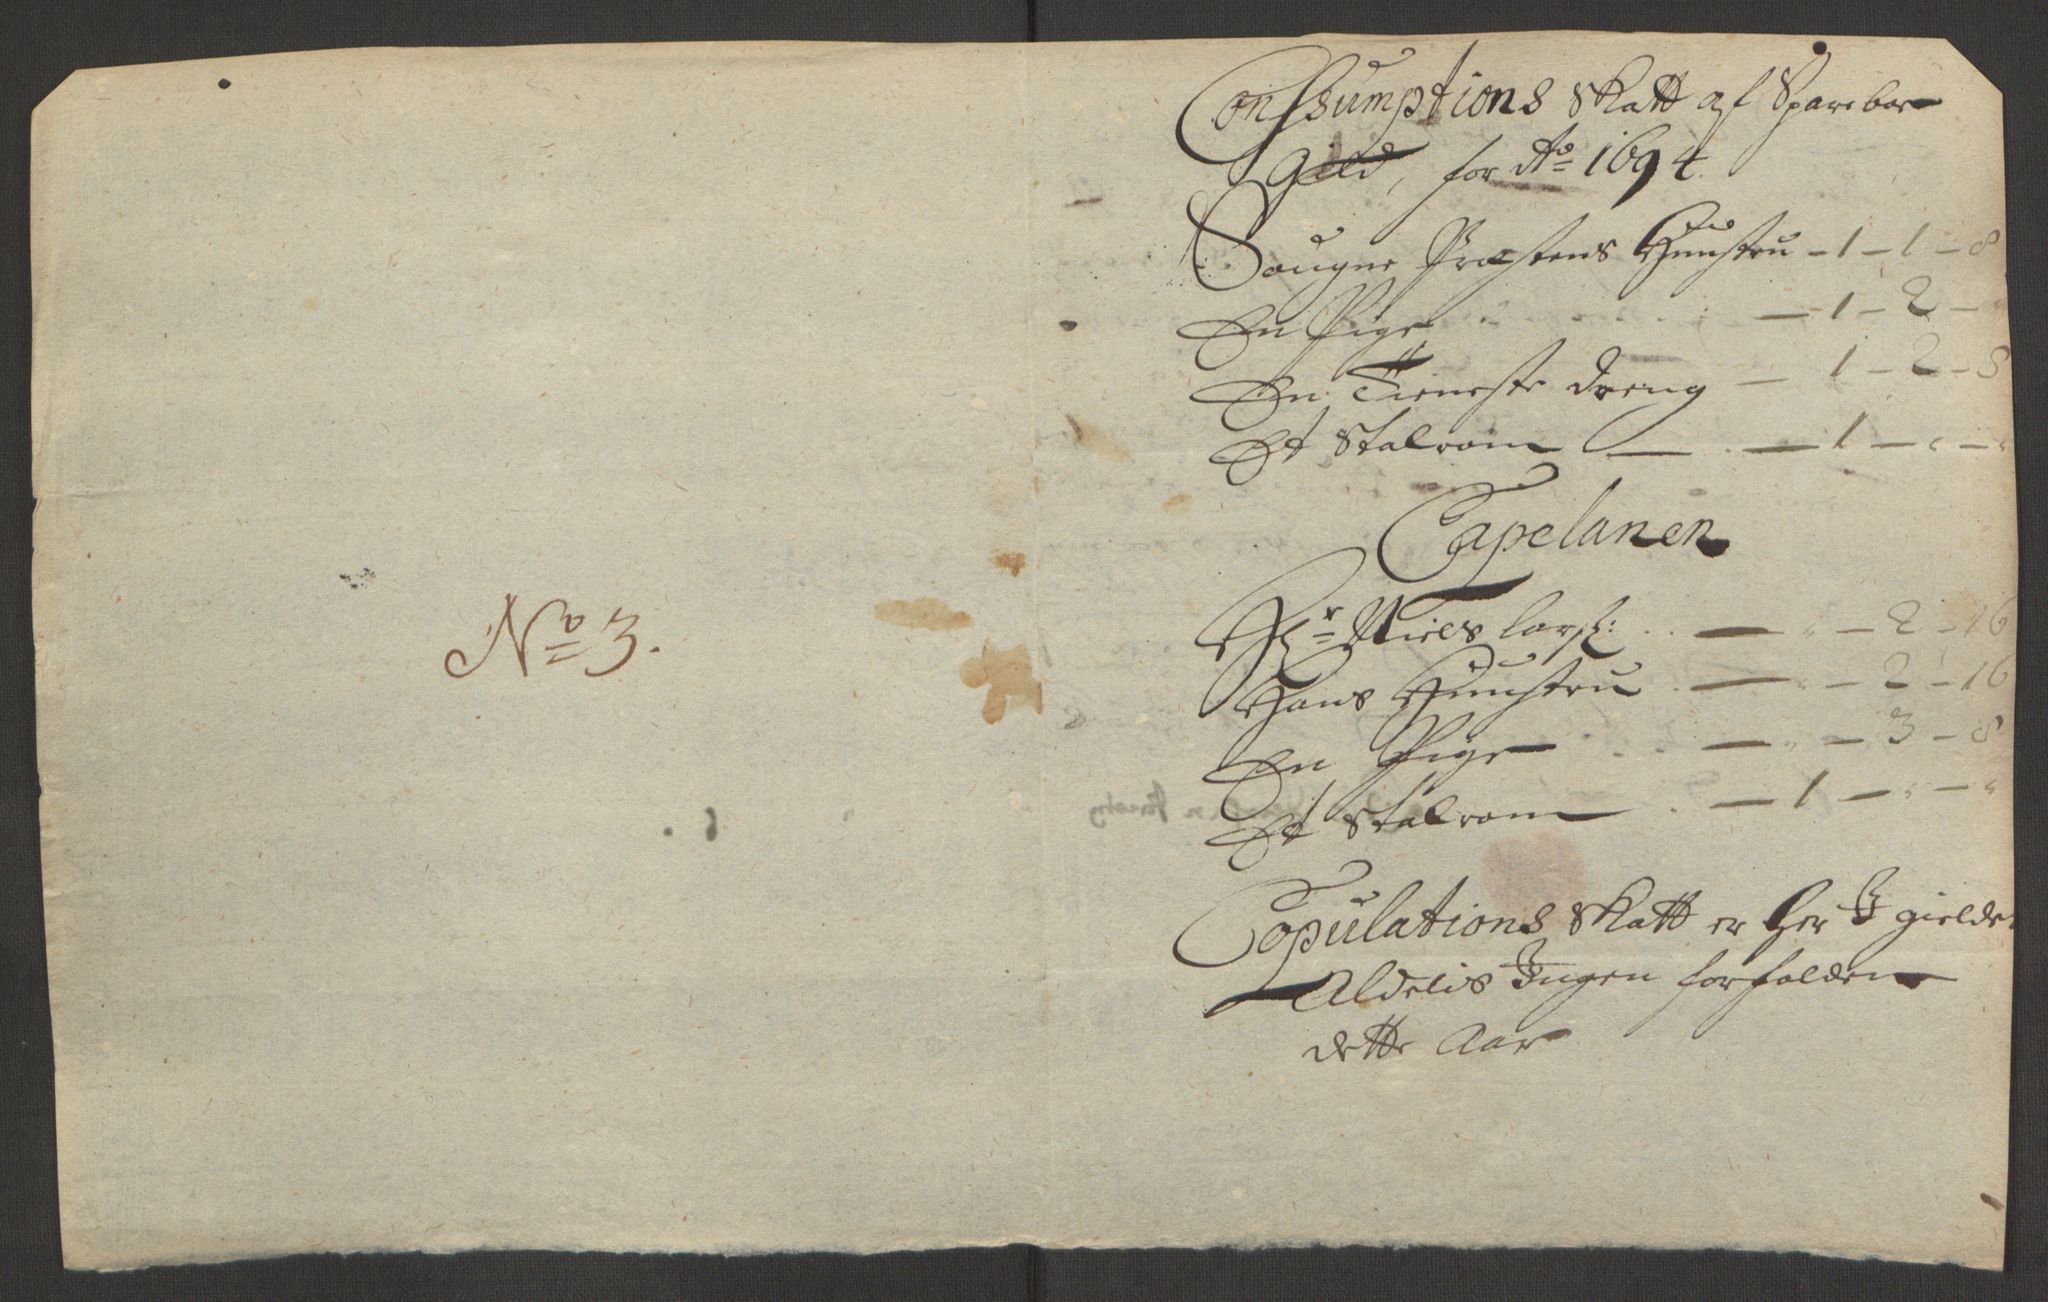 No 3.
Conssumptions Skatt af Spareboe
Gield, for Ao 1694.
Sougne Præstens Hunstru - 1 - 1 - 8
En Pige - 1 - 2 - "
En Tieneste dreng - 1 - 2 - 8
Et Stalrom - 1 - " - "
Capelanen
Hr Niels Larss: - " - 2 - 16
Hans Hunstru - " - 2 - 16
En Pige - " - 3 - 8
Et Stalrom - 1 - " - "
Copulations Skatt er her J gieldet
Aldelis Jngen forfalden
dette Aar